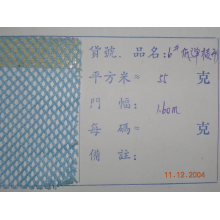 貨號、品名:6#
平方米= 55 克
門 幅: 1.60m
每 碼= 克
備 註:
11.12.2004